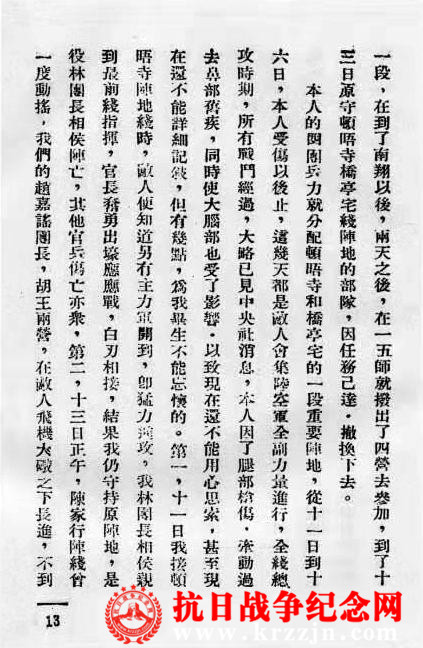 一段，在到了南翔以後，兩天之後，在一五師就撥出了四營去參加，到了十
三日原守頓晤寺橋亭宅綫陣地的部隊，因任務已達，撤換下去。
本人的四團兵力就分配頓晤寺和橋亭宅的一段重要陣地，從十一日到十
六日，本人受傷以後止，這幾天都是敵人會集陸空軍全副力量進行，全綫總
攻時期，所有戰鬥經過，大略已見中央社消息，本人因了腿部槍傷，牽動過
去鼻部舊疾，同時使大腦部也受了影響。以致現在還不能用心思索，甚至現
在還不能詳細記敍，但有幾點，爲我畢生不能忘懷的。第一，十一日我接頓
晤寺陣地綫時，敵人便知道另有主力軍開到，卽猛力攻，我林團長相侯親
到最前綫指揮，官長奮勇出壕應戰，白刃相接，結果我仍守持原陣地，是
役林團長相侯陣亡，其他官兵傷亡亦衆，第二，十三日正午，陳家行陣綫曾
一度動搖，我們的趙嘉謠團長，胡王兩營，在敵人飛機大礮之下長進，不到
13
抗日战争纪念网
www.krzzjn.com